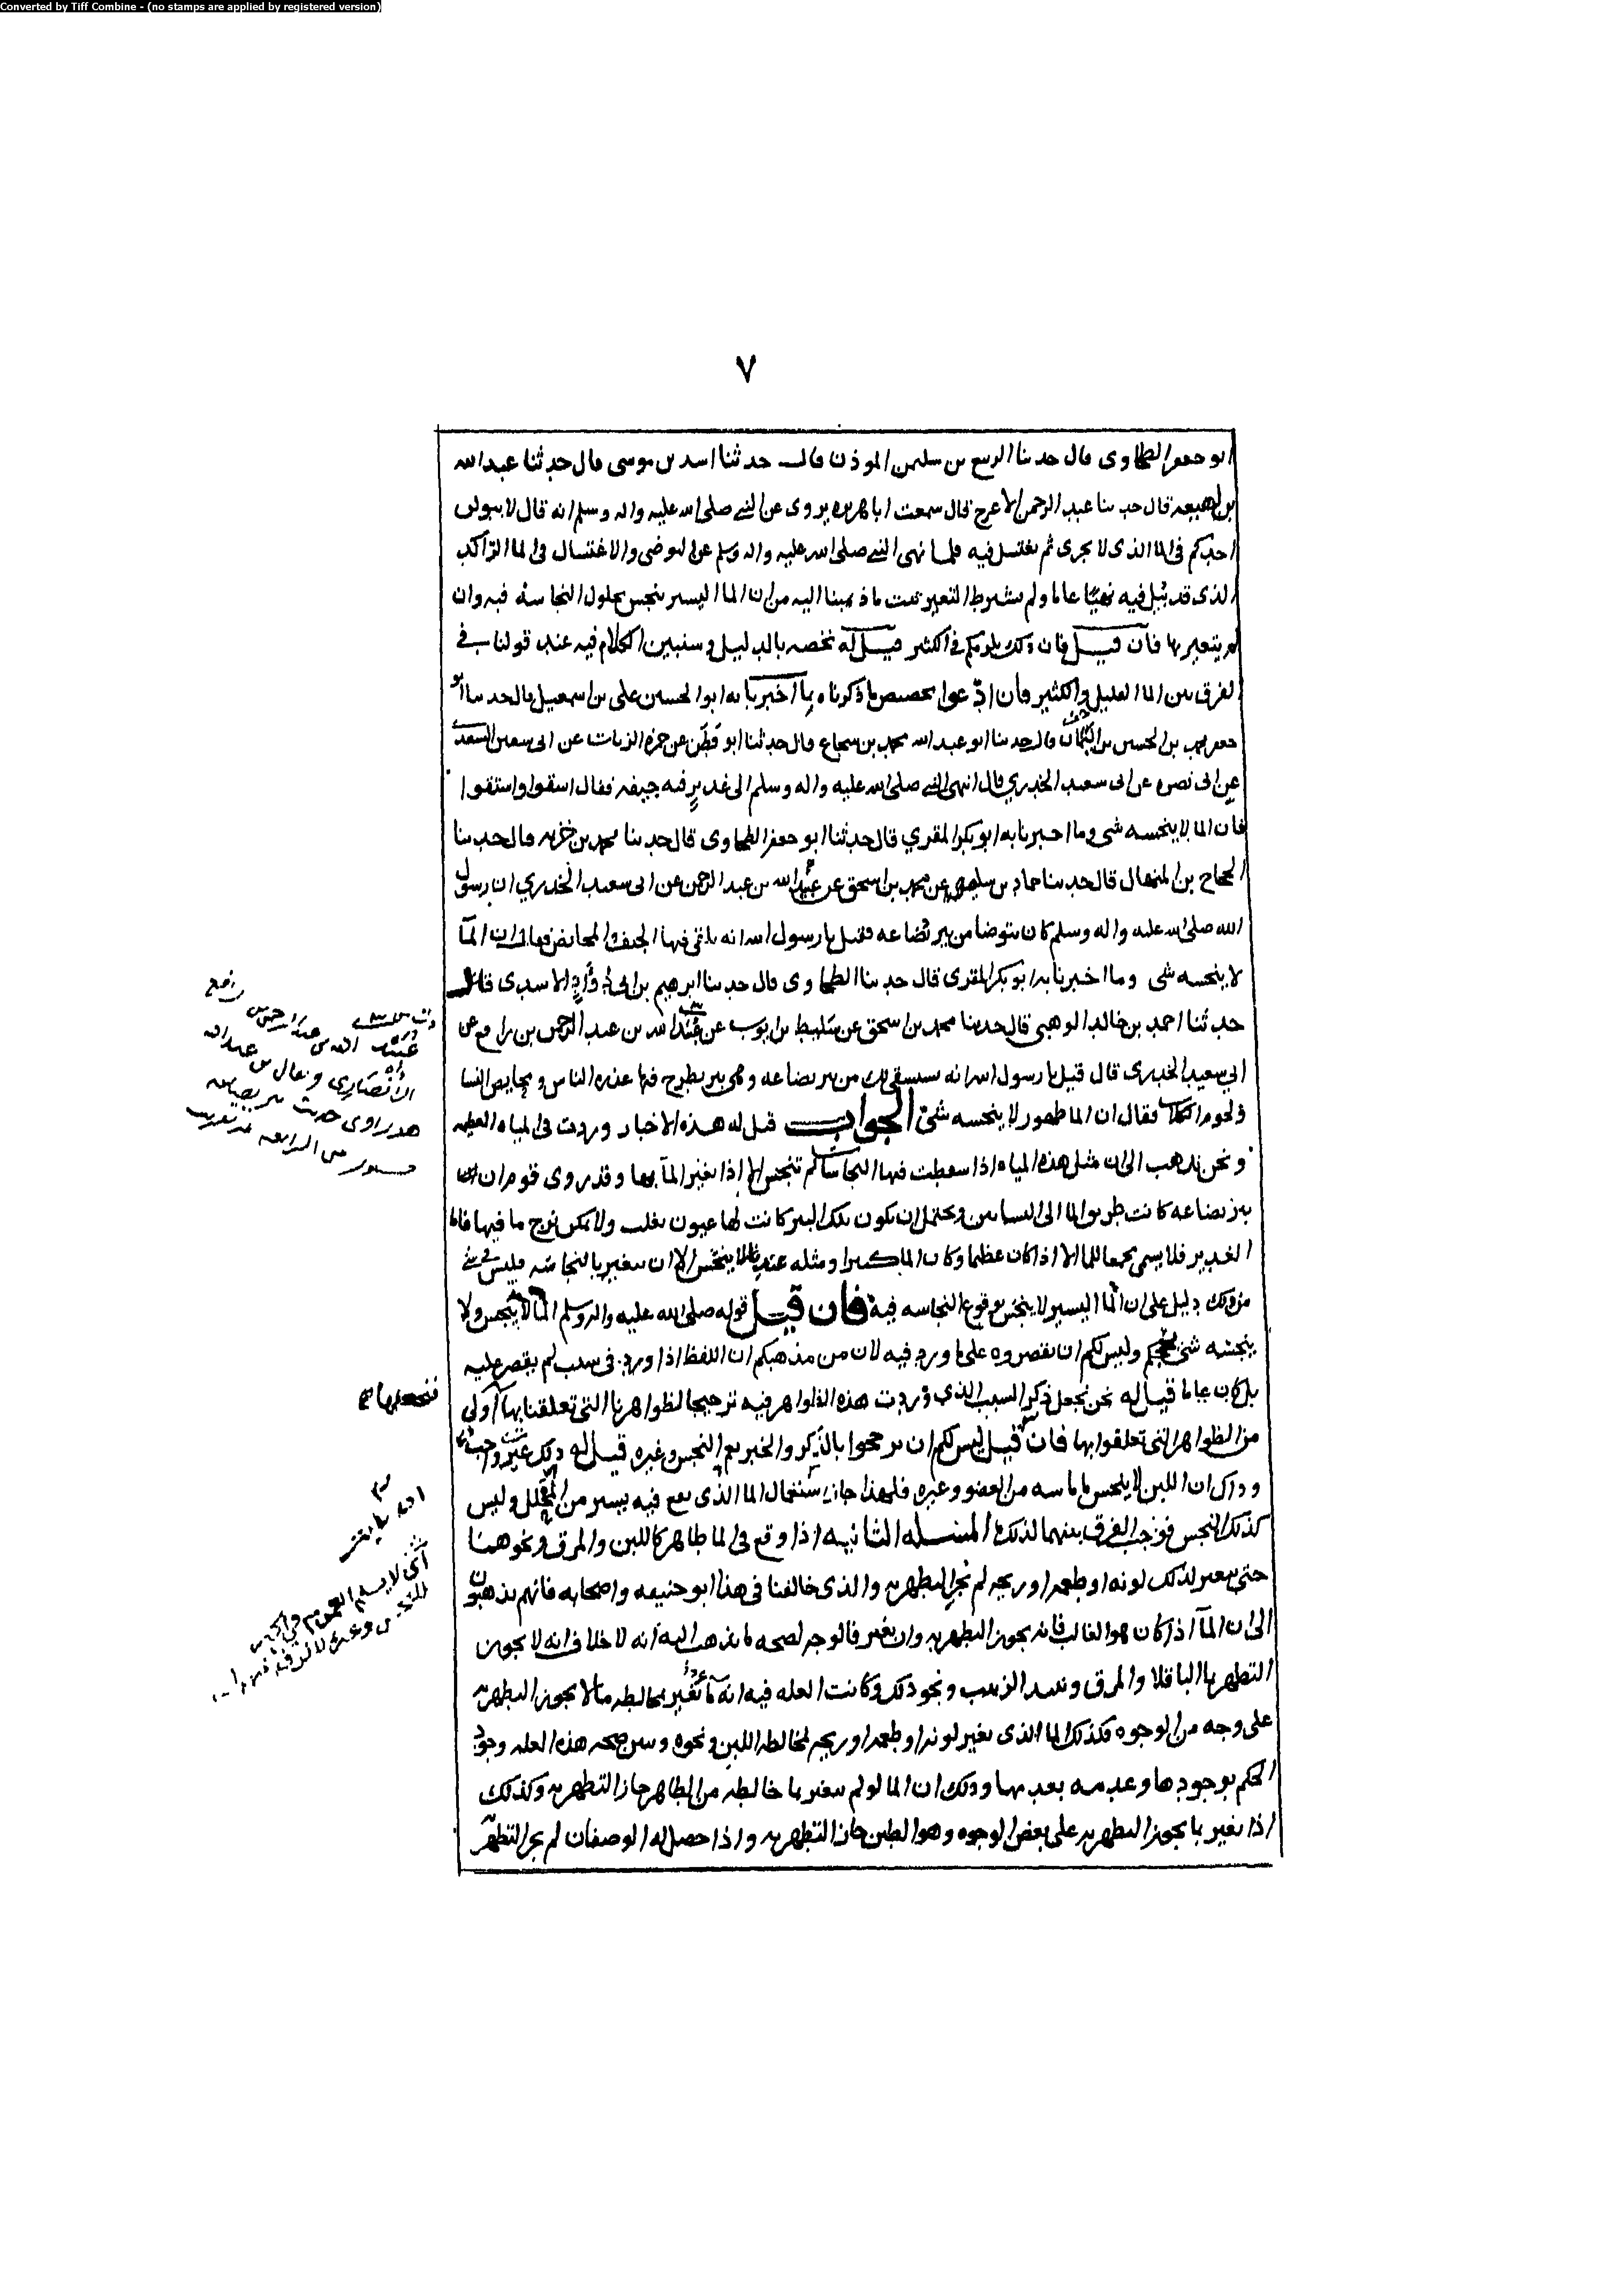 Converted by Tiff Combine - (no stamps are applied by registered version)
٧
ابو جعفر الطحاوى قال حدثنا الربيع بن سليمن الموذن قال حدثنا اسد بن موسى قال حدثنا عبد الله
بن لهيعه قال حدثنا عبد الرحمن الاعرج قال سمعت اباهريره يروى عن النبي صلى الله عليه واله وسلم انه قال لا يبولن
احدكم فى الما الذى لا يجرى ثم يغتسل فيه فلما نهى النبي صلى الله عليه واله وسلم عن التوضى والاغتسال فى الما الراكد
الذى قد بيل فيه نهيًا عاما ولم يشترط التغير ثبت ما ذهبنا اليه من ان الما اليسير ينجس بحلول النجاسة فيه وان
لم يتغير بها فان قيل فان ذلك يلزمكم فى الكثير قيل له نخصه بالدليل وسنبين الكلام فيه عند قولنا في
الفرق بين الما القليل والكثير فان ادّعوا تخصيص ما ذكرناه بما اخبرنا به ابو الحسين على بن اسمعيل قال حدثنا ابو
جعفر محمد بن الحسين بن اليمان قال حدثنا ابو عبد الله محمد بن شجاع قال حدثنا ابو قطن عن حمزه الزيات عن ابى سفين السعدي
عن ابى نصره عن ابى سعيد الخدري قال انتهى النبي صلى الله عليه واله وسلم الى غدير فيه جيفه فقال اسقوا واستقوا
فان الما لا ينجسه شى وما اخبرنا به ابو بكر المقري قال حدثنا ابو جعفر الطحاوى قال حدثنا محمد بن خزيمه قال حدثنا
الحجاج بن المنهال قال حدثنا حماد بن سلمه عن محمد بن اسحق عن عبيد الله بن عبد الرحمن عن ابى سعيد الخدري ان رسول
الله صلى الله عليه واله وسلم كان يتوضا من بير بضاعه فقيل يا رسول الله انه يلقى فيها الجيف والمحايض فقال ان المآ
لا ينجسه شى وما اخبرنا به ابو بكر المقرى قال حدثنا الطحاوى قال حدثنا ابرهيم بن ابى داود الاسدى قال
حدثنا احمد بن خالد الوهبى قال حدثنا محمد بن اسحق عن سليط بن ايوب عن عبيد الله بن عبد الرحمن بن رافع عن
ابي سعيد الخدرى قال قيل يا رسول الله انه يستسقى لك من بير بضاعه وهى بير يطرح فيها عذره الناس ومحايض النسا
ولحوم الكلاب فقال ان الما طهور لا ينجسه شئ الجواب قيل له هذه الاخبار وردت فى المياه العظيمه
ونحن نذهب الى ان مثل هذه المياه اذا سقطت فيها النجاسات لم تنجس الا اذا تغير المآ بها وقد روى قوم ان
بير بضاعه كانت طريق الما الى البساتين ويحتمل ان يكون تلك البير كانت لها عيون تغلب ولا يمكن نزح ما فيها فاما
الغدير فلا يسمى مجمعا للما الا اذا كان عظيما وكان الما كثيرا ومثله عندنا لا ينجس الا ان يتغير بالنجاسه فليس في شي
من ذلك دليل على ان الما اليسير لا ينجس بوقوع النجاسه فيه فان قيل قوله صلى الله عليه واله وسلم الما لا ينجس ولا
ينجسه شئ وليس لكم ان تقصروه على ما ورد فيه لان من مذهبكم ان اللفظ اذا ورد فى سبب لم يقصر عليه
بل كان عاما قيل له نحن نجعل ذكر السبب الذى وردت هذه الظواهر فيه ترجيحا لظواهرنا التى تعلقنا بها اولى
من الظواهر التى تعلقوا بها فان قيل ليس لكم ان ترجحوا بالذكر والخبر يعم النجس وغيره قيل له ذلك غير واجب
وذاك ان اللبن لا ينجس ما ماسه من العضو وغيره فلهذا جاز استعمال الما الذى يقع فيه يسير من وليس
كذلك النجس فوجب الفرق بينهما لذلك المسئله الثانيه اذا وقع فى الما طاهر كاللبن والمرق ونحو هذا
حتى يتغير لذلك لونه او طعمه او ريحه لم يجز التطهر به والذى خالفنا فى هذا ابو حنيفه واصحابه فانهم يذهبون
الى ان المآ اذا كان هو الغالب فانه يجوز التطهر به وان تغير فالوجه لصحه ما نذهب اليه انه لا خلاف انه لا يجوز
التطهر بما الباقلا والمرق ونبيذ الزبيب ونحو ذلك وكانت العله فيه انه ما تغير بمخالطه ما لا يجوز التطهر به
على وجه من الوجوه فكذلك الما الذى تغير لونه او طعمه او ريحه لمخالطه اللبن ونحوه وبين صحه هذه العله وجود
الحكم بوجودها وعدمه بعدمها وذلك ان الما لو لم يتغير بما خالطه من الطاهر جاز التطهر به وكذلك
اذا تغير بما يجوز التطهر به على بعض الوجوه وهو الطين جاز التطهر به واذا حصل له الوصفان لم يجز التطهر
عبيد الله بن عبد الرحمن بن رافع
الأنصاري ويقال بن عبد الله
هو راوى حديث بير بضاعه
مستور من الرابعه تقريب
أى لا يسلم العموم